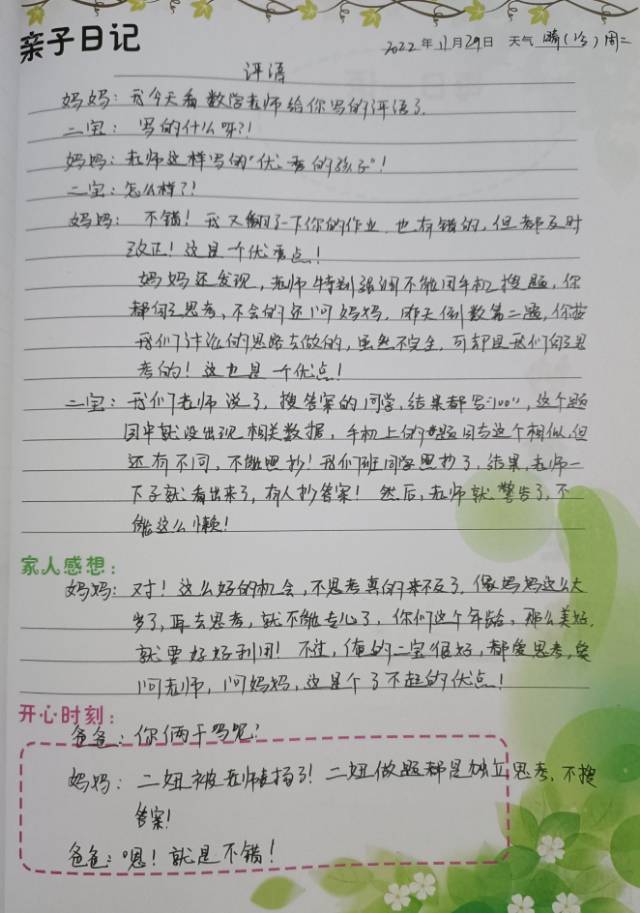 亲子日记
2022年11月29日 天气 晴(冷)周二
评语
妈妈：我今天看数学老师给你写的评语了.
二宝：写的什么呀?!
妈妈：老师这样写的"优秀的孩子"!
二宝：怎么样?!
妈妈：不错！我又翻了一下你的作业.也有错的,但都及时
改正！这是一个优秀点！
妈妈还发现,老师特别强调不能用手机搜题,你
都自己思考,不会的还问妈妈,昨天倒数第二题,你按
我们讨论的思路去做的,虽然不完全,可却是我们自己思
考的！这也是一个优点！
二宝：我们老师说了,搜答案的同学,结果都写"100",这个题
目中就没出现相关数据,手机上的题目与这个相似,但
还有不同,不能照抄！我们班同学照抄了,结果,老师一
下子就看出来了,有人抄答案！然后,老师就警告了,不
能这么懒！
家人感想：
妈妈：对！这么好的机会,不思考真的来不及了,像妈妈这么大
岁了,再去思考,就不能专心了,你们这个年龄,那么美好,
就要好好利用！不过,俺的二宝很好,都爱思考,
问老师,问妈妈,这是个了不起的优点！
开心时刻：
爸爸：你俩干吗呢?
妈妈：二妞被老师表扬了！二妞做题都是独立思考,不搜
答案！
爸爸：嗯！就是不错！